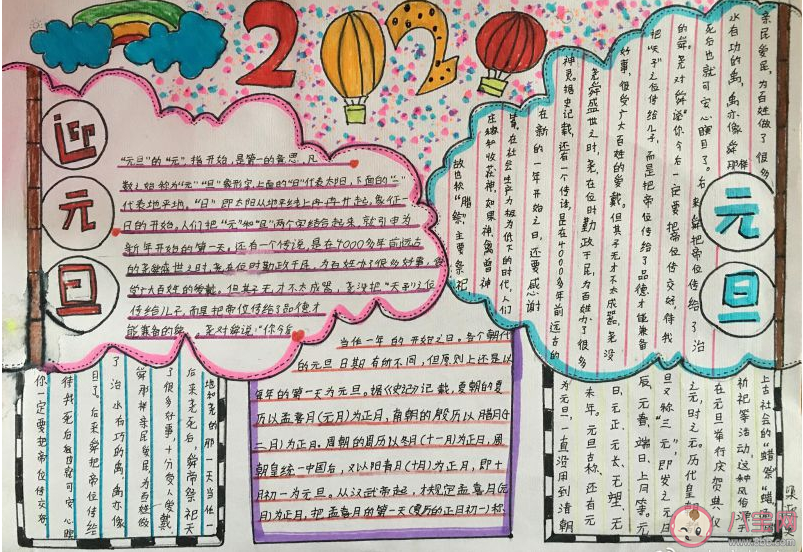 2020
迎
元
旦
"元旦"的"元",指开始,是第一的意思,凡
数之始称为"元""旦"象形字,上面的"日"代表太阳,下面的"一"
代表地平线。"旦"即太阳从地平线上冉冉升起,象征一
日的开始。人们把"元"和"旦"两个字结合起来,就引申为
新年开始的第一天。还有一个传说,是在4000多年前远古
的尧舜盛世之时,尧在位时勤政于民,为百姓办了很多好事,很
受广大百姓的爱戴,但其子无才不太成器,尧没把"天子"之位
传给儿子,而是把帝位传给了品德才
能兼备的舜。尧对舜说:"你今后
元
旦
亲民爱民,为百姓做了很多
水有功的禹,禹亦像舜那样
死后也就可安心瞑目了。后来舜把帝位传给了治
的舜。尧对舜说:"你今后一定要把帝位传交好,待我
把"天子"之位传给儿子,而是把帝位传给了品德才能兼备
好事,很受广大百姓的爱戴。但其子无才不太成器,尧没
尧舜盛世之时,尧,在位时勤政于民,为百姓办了很多
神灵。据史记载,还有一个传说,是在4000多年前远古的
在新的一年开始之日,还要感谢
事,在社会生产力极为低下的时代,人们
庄稼和收获神,如果神,禽兽神
故也称"腊"祭,主要祭祀
地和尧的那一天当作一
后来尧死后,舜帝祭祀天
了很多好事,十分受人爱戴。
舜那样亲民爱民,为百姓做
了治水有功的禹,禹亦像
目了。后来舜把帝位传给
待我死后也就可安心瞑
你一定要把帝位传交好
当作一年的开始之日。各个朝代
的元旦日期有所不同,但原则上还是以
每年的第一天为元旦。据《史记》记载,夏朝的夏
历以孟喜月(元月)为正月,商朝的殷历以腊月(十
二月)为正月,周朝的周历以冬月(十一月)为正月,周
朝皇统一中国后,又以阳春月(十月)为正月,即十
月初一为元旦。从汉武帝起,才规定孟喜月(元
月)为正月,把孟喜月的第一天(夏历的正月初一)称
上古社会的"蜡祭""蜡
祈祀等活动,这种风俗
在元旦举行庆贺典仪
之元,时之元。历代皇朝
旦又称"三元",即岁之元,月
辰、元春、端日、上日等。元
日、元正、元长、元塑、元
来年。元旦古称,还有元
为元旦,一直沿用到清朝
八宝网